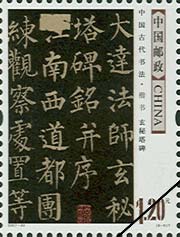 中国邮政
CHINA
中国古代书法·楷书 玄秘塔碑
大達法師玄秘
塔碑銘并序
江南西道都團
練觀察處置等
1.20元